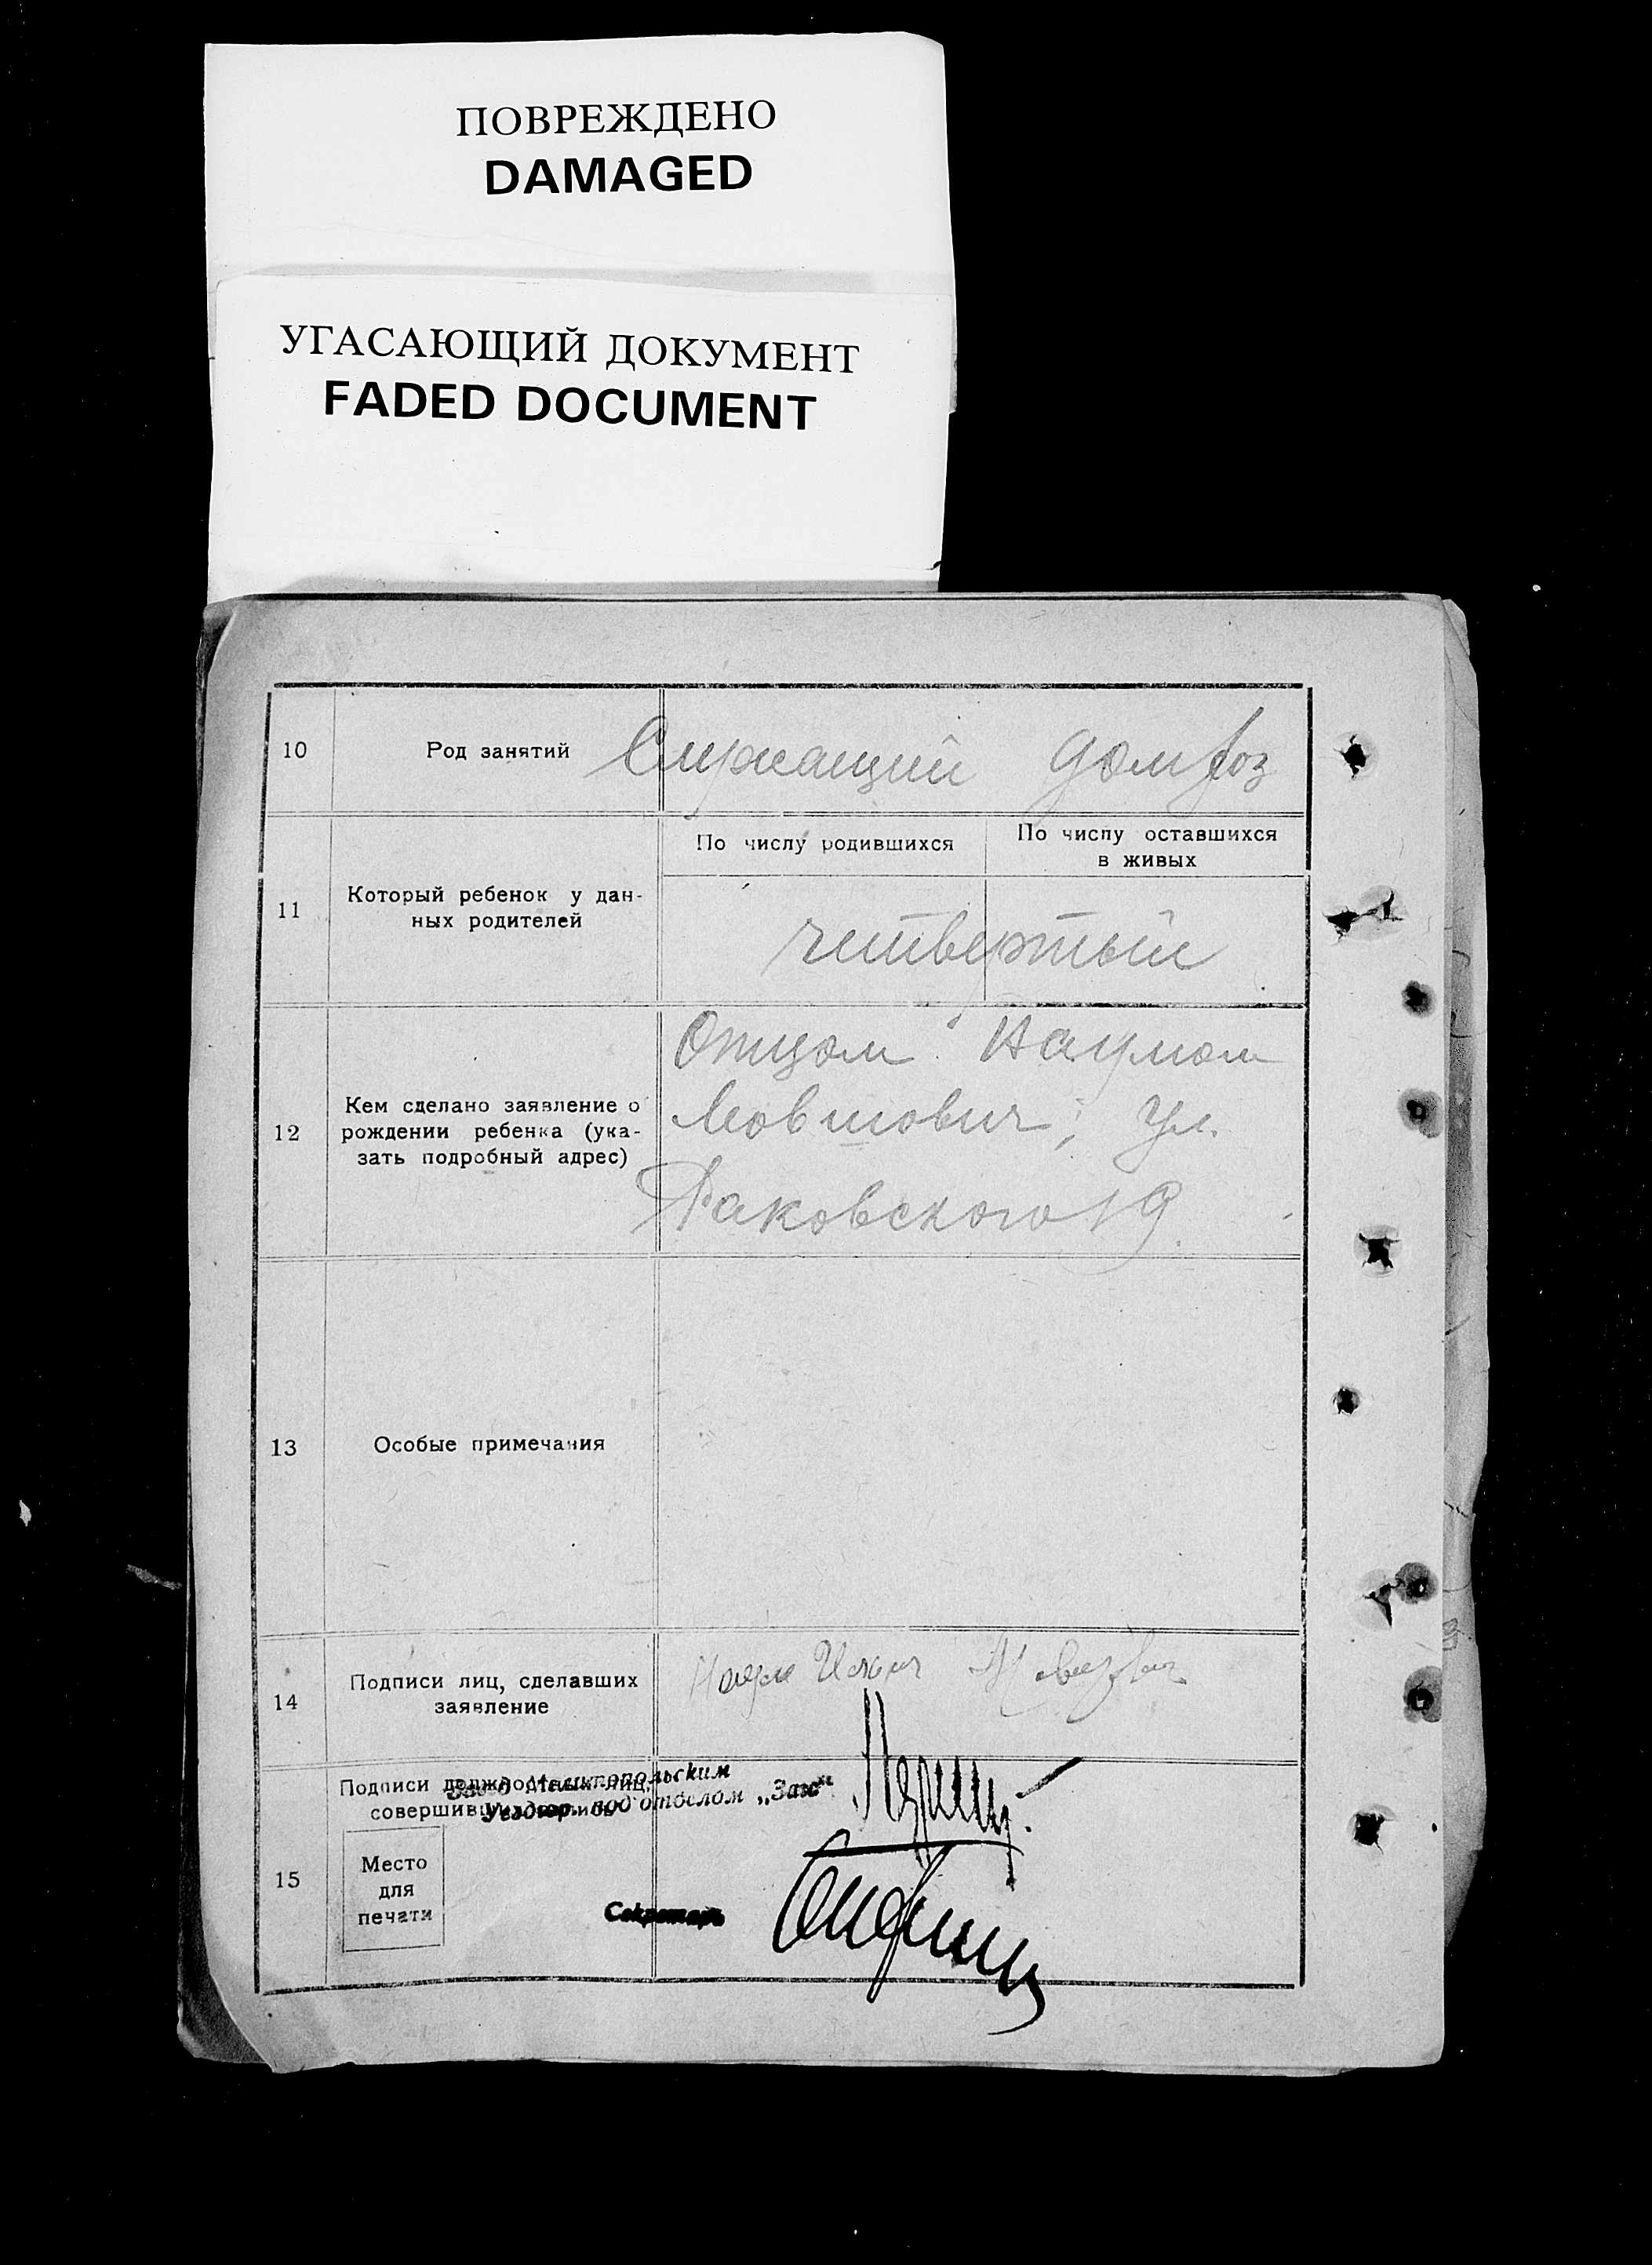 ПОВРЕЖДЕНО
DAMAGED
УГАСАЮЩИЙ ДОКУМЕНТ
FADED DOCUMENT
10
Род занятий
Служащий
домхоз
11
Который ребенок у дан-
ных родителей
По числу родившихся
По числу оставшихся
в живых
четвертый
12
Кем сделано заявление о
рождении ребенка (ука-
зать подробный адрес)
Отцом Наумом
Мовшович, ул.
Раковского 19.
13
Особые примечания
14
Подписи лиц, сделавших
заявление
Наум
15
Подписи должностных лиц,
совершивших запись
Зав. Мелитопольским
под'отделом „Загс"
Место
для
печати
Секретарь